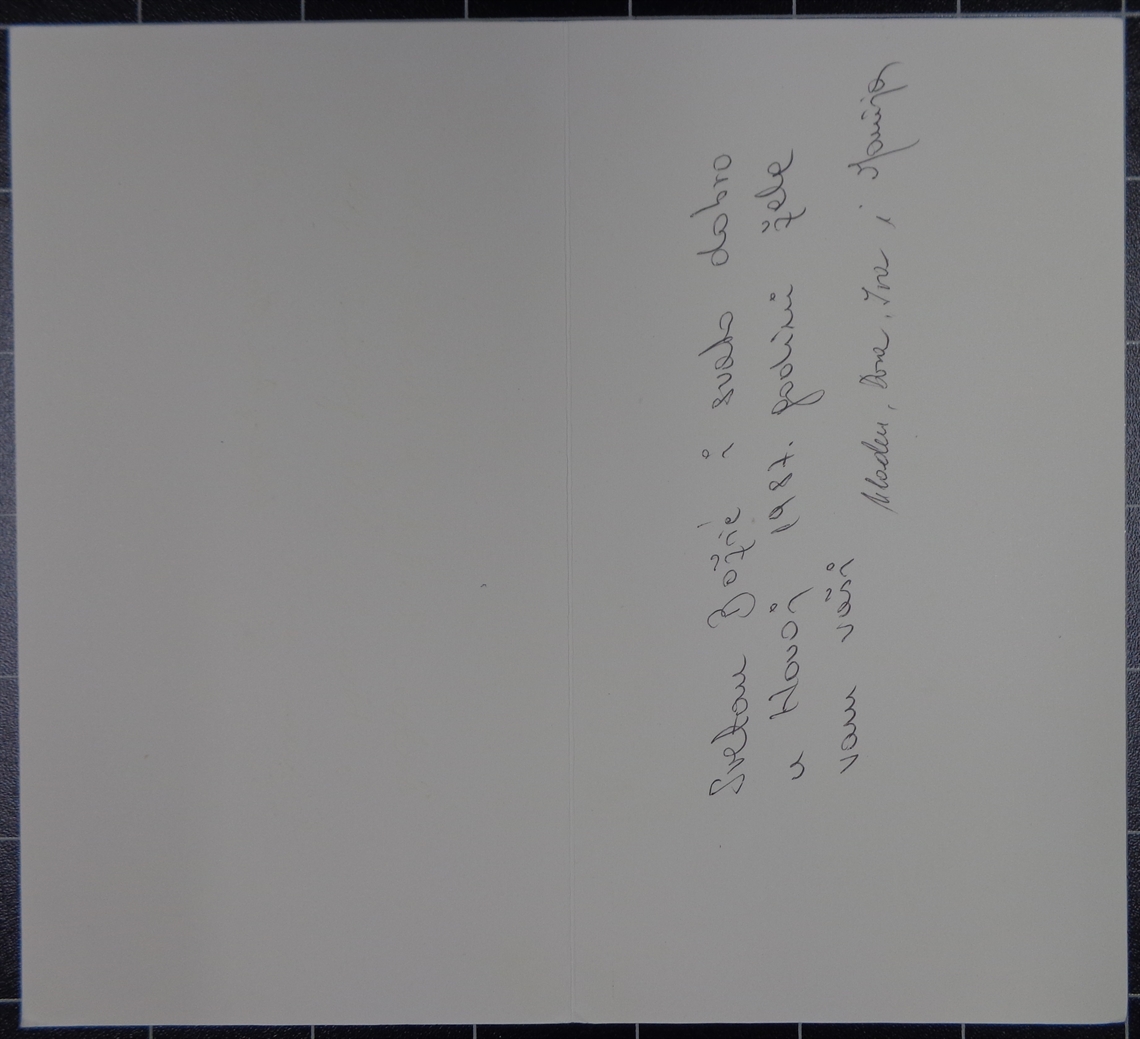 Sretan Božić i svako dobro
u Novoj 1987. godini žele
vam vaši
Mladen, Ana, Iva i Marija